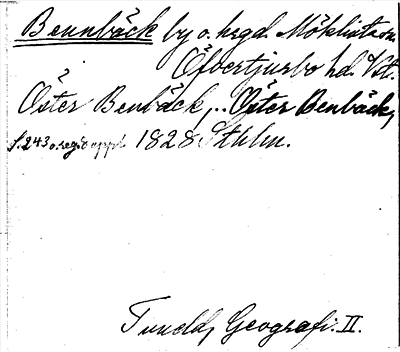 Bennbäck by o. hrgd. Möklinta sn.
Öfvertjurbo hd. Vstl.
Öster Benbäck, .. Öster Benbäck,
s. 243 o. reg. 8 uppl. 1828 Sthlm.
Tuneld, Geografi. II.